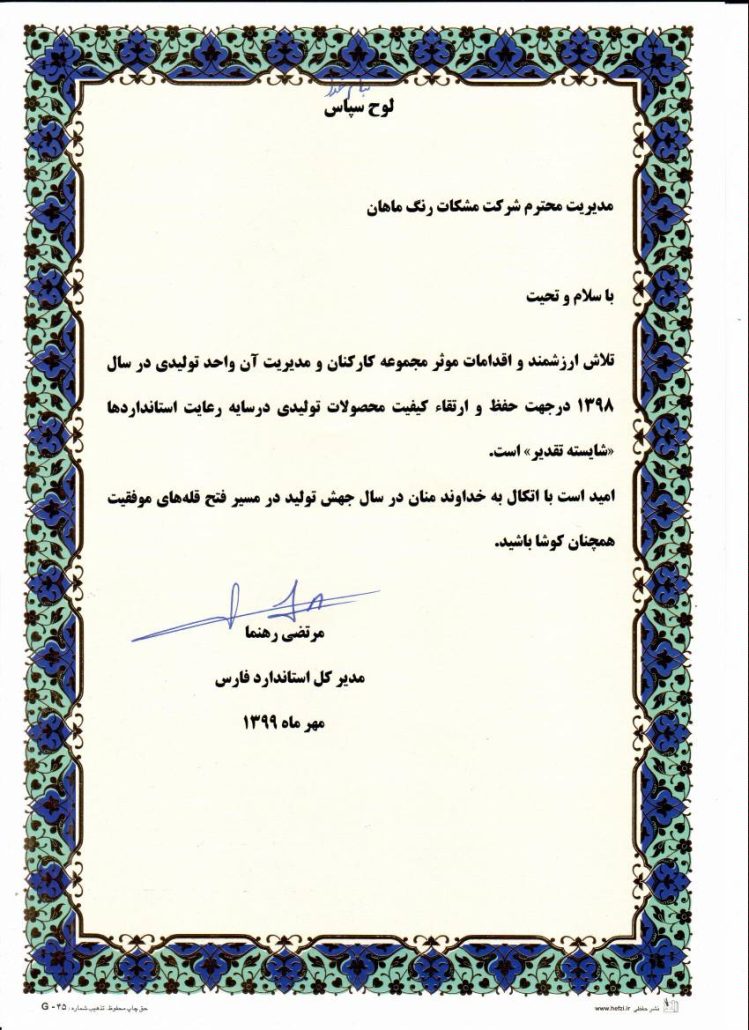 بنام خدا
لوح سپاس
مدیریت محترم شرکت مشکات رنگ ماهان
با سلام و تحیت
تلاش ارزشمند و اقدامات موثر مجموعه کارکنان و مدیریت آن واحد تولیدی در سال
۱۳۹۸ درجهت حفظ و ارتقاء کیفیت محصولات تولیدی درسایه رعایت استانداردها
«شایسته تقدیر» است.
امید است با اتکال به خداوند منان در سال جهش تولید در مسیر فتح قله‌های موفقیت
همچنان کوشا باشید.
مرتضی رهنما
مدیر کل استاندارد فارس
مهر ماه ۱۳۹۹
نشر حفظی www.hefzi.ir
حق چاپ محفوظ. تذهیب شماره: G - ۴۵